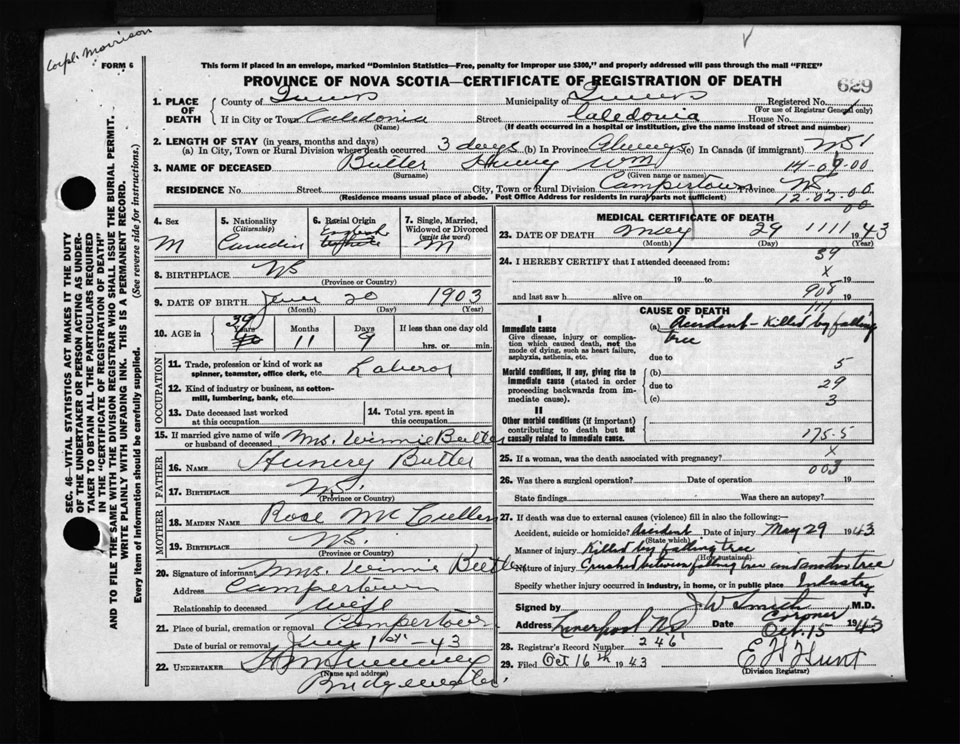 Corpl. Morrison
FORM 6
This form if placed in an envelope, marked "Dominion Statistics—Free, penalty for improper use $300," and properly addressed will pass through the mail "FREE"
PROVINCE OF NOVA SCOTIA—CERTIFICATE OF REGISTRATION OF DEATH
629
1. PLACE OF DEATH
County of Queens Municipality of Queens Registered No.
(For use of Registrar General only)
If in City or Town Caledonia Street Caledonia House No.
(Name) (If death occurred in a hospital or institution, give the name instead of street and number)
2. LENGTH OF STAY (in years, months and days)
(a) In City, Town or Rural Division where death occurred 3 days (b) In Province Always (c) In Canada (if immigrant)
3. NAME OF DECEASED Butler Wm 14-09-00
(Surname) (Given name or names)
RESIDENCE No. Street City, Town or Rural Division Campertown Province NS
(Residence means usual place of abode. Post Office Address for residents in rural parts not sufficient) 12-02-00
00
4. Sex
M
5. Nationality (Citizenship)
6. Racial Origin
English
7. Single, Married, Widowed or Divorced (write the word)
M
8. BIRTHPLACE NS
(Province or Country)
9. DATE OF BIRTH June 20 1903
(Month) (Day) (Year)
10. AGE in
39
Years Months Days If less than one day old
40 11 9 hrs. or min.
OCCUPATION
11. Trade, profession or kind of work as spinner, teamster, office clerk, etc. Laborer
12. Kind of industry or business, as cotton-mill, lumbering, bank, etc.
13. Date deceased last worked at this occupation
14. Total yrs. spent in this occupation
15. If married give name of wife or husband of deceased Mrs. Winnie Butler
FATHER
16. NAME Butler
17. BIRTHPLACE NS.
(Province or Country)
MOTHER
18. MAIDEN NAME Rose
19. BIRTHPLACE NS.
(Province or Country)
20. Signature of informant Mrs. Winnie Butler
Address Campertown
Relationship to deceased Wife
21. Place of burial, cremation or removal Campertown
Date of burial or removal 1st - 43
22. UNDERTAKER
(Name and address)
Bridgewater
MEDICAL CERTIFICATE OF DEATH
23. DATE OF DEATH May 29 1111 1943
(Month) (Day) (Year)
24. I HEREBY CERTIFY that I attended deceased from: 39
19 to X 19
and last saw h alive on 908 19
CAUSE OF DEATH 11
I
Immediate cause
Give disease, injury or complication which caused death, not the mode of dying, such as heart failure, asphyxia, asthenia, etc.
(a) Accident - Killed by falling tree
due to
Morbid conditions, if any, giving rise to immediate cause (stated in order proceeding backwards from immediate cause).
(b) 5
due to 29
(c) 3
II
Other morbid conditions (if important) contributing to death but not causally related to immediate cause.
175-5
25. If a woman, was the death associated with pregnancy? X
003
26. Was there a surgical operation? Date of operation 19
State findings Was there an autopsy?
27. If death was due to external causes (violence) fill in also the following:—
Accident, suicide or homicide? Accident Date of injury May 29 1943
(State which)
Manner of injury Killed by falling tree
(How sustained)
Nature of injury Crushed between falling tree and another tree
Specify whether injury occurred in industry, in home, or in public place Industry
Signed by J W Smith M.D.
Coroner
Address Liverpool NS Date Oct. 15 1943
28. Registrar's Record Number 246
29. Filed Oct 16th 1943 E H Hunt
(Division Registrar)
SEC. 46—VITAL STATISTICS ACT MAKES IT THE DUTY OF THE UNDERTAKER OR PERSON ACTING AS UNDERTAKER TO OBTAIN ALL THE PARTICULARS REQUIRED IN THE "CERTIFICATE OF REGISTRATION OF DEATH" AND TO FILE THE SAME WITH THE DIVISION REGISTRAR WHO SHALL ISSUE THE BURIAL PERMIT.
WRITE PLAINLY WITH UNFADING INK. THIS IS A PERMANENT RECORD.
Every item of information should be carefully supplied. (See reverse side for instructions.)